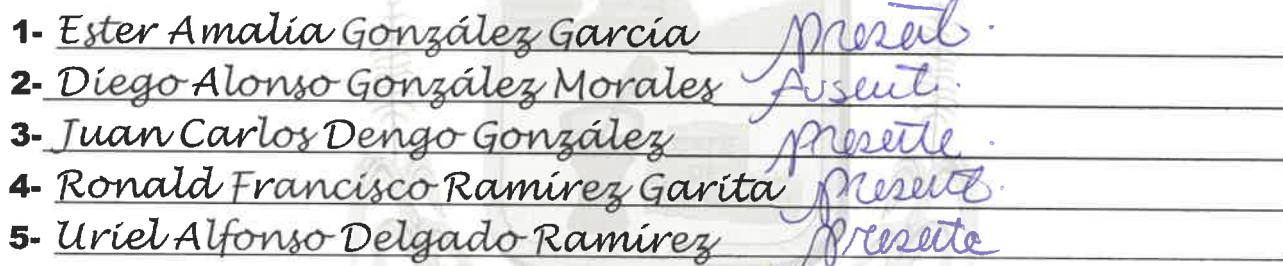 1- Ester Amalia González García presente.
2- Diego Alonso González Morales Ausente.
3- Juan Carlos Dengo González presente.
4- Ronald Francisco Ramírez Garita presente.
5- Uriel Alfonso Delgado Ramírez Presente